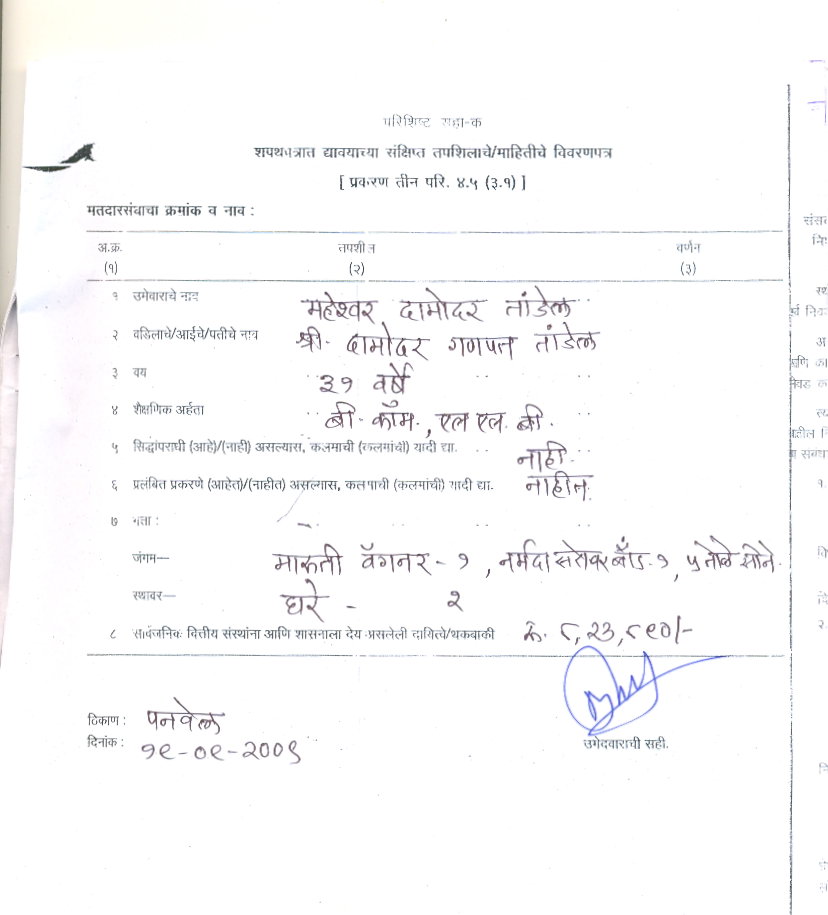 परिशिष्ट सहा-क
शपथपत्रात द्यावयाच्या संक्षिप्त तपशिलाचे/माहितीचे विवरणपत्र
[ प्रकरण तीन परि. ४.५ (३.१) ]
मतदारसंघाचा क्रमांक व नाव :
अ.क्र. तपशील वर्णन
(१) (२) (३)
१ उमेवाराचे नाव महेश्वर दामोदर तांडेल
२ वडिलाचे/आईचे/पतीचे नाव श्री. दामोदर गणपत तांडेल
३ वय ३१ वर्षे
४ शैक्षणिक अर्हता बी. कॉम., एल एल. बी.
५ सिद्धापराधी (आहे)/(नाही) असल्यास, कलमाची (कलमांची) यादी द्या. नाही.
६ प्रलंबित प्रकरणे (आहेत)/(नाहीत) असल्यास, कलमाची (कलमांची) यादी द्या. नाहीत.
७ मत्ता :
जंगम— मारूती वॅगनर - १, नर्मदा सरोवर बाँड-१, ५ तोळे सोने.
स्थावर— घरे - २
८ सार्वजनिक वित्तीय संस्थांना आणि शासनाला देय असलेली दायित्वे/थकबाकी रू. ८,२३,८९०/-
ठिकाण : पनवेल
दिनांक : १९-०९-२००९
उमेदवाराची सही.